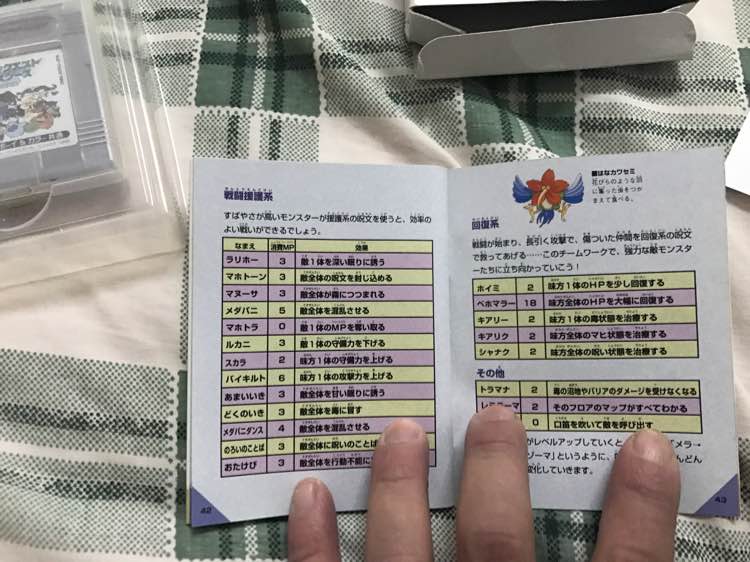 戦闘援護系
すばやさが高いモンスターが援護系の呪文を使うと、効率の
よい戦いができるでしょう。
なまえ 消費MP 効果
ラリホー 3 敵1体を深い眠りに誘う
マホトーン 3 敵全体の呪文を封じ込める
マヌーサ 3 敵全体が霧につつまれる
メダパニ 5 敵全体を混乱させる
マホトラ 0 敵1体のMPを奪い取る
ルカニ 3 敵1体の守備力を下げる
スカラ 2 味方1体の守備力を上げる
バイキルト 6 味方1体の攻撃力を上げる
あまいいき 3 敵全体を甘い眠りに誘う
どくのいき 3 敵全体を毒に冒す
メダパニダンス 4 敵全体を混乱させる
のろいのことば 3 敵全体に呪いのことば
おたけび 3 敵全体を行動不能に
42
■はなカワセミ
花びらのような頭
に集った虫をつか
まえて食べる。
回復系
戦闘が始まり、長引く攻撃で、傷ついた仲間を回復系の呪文
で救ってあげる……このチームワークで、強力な敵モンス
ターたちに立ち向かっていこう!
ホイミ 2 味方1体のHPを少し回復する
ベホマラー 18 味方全体のHPを大幅に回復する
キアリー 2 味方1体の毒状態を治療する
キアリク 2 味方全体のマヒ状態を治療する
シャナク 2 味方全体の呪い状態を治療する
その他
トラマナ 2 毒の沼地やバリアのダメージを受けなくなる
レミラーマ 2 そのフロアのマップがすべてわかる
0 口笛を吹いて敵を呼び出す
がレベルアップしていくと、「メラ→
ゾーマ」というように、 どんどん
変化していきます。
43